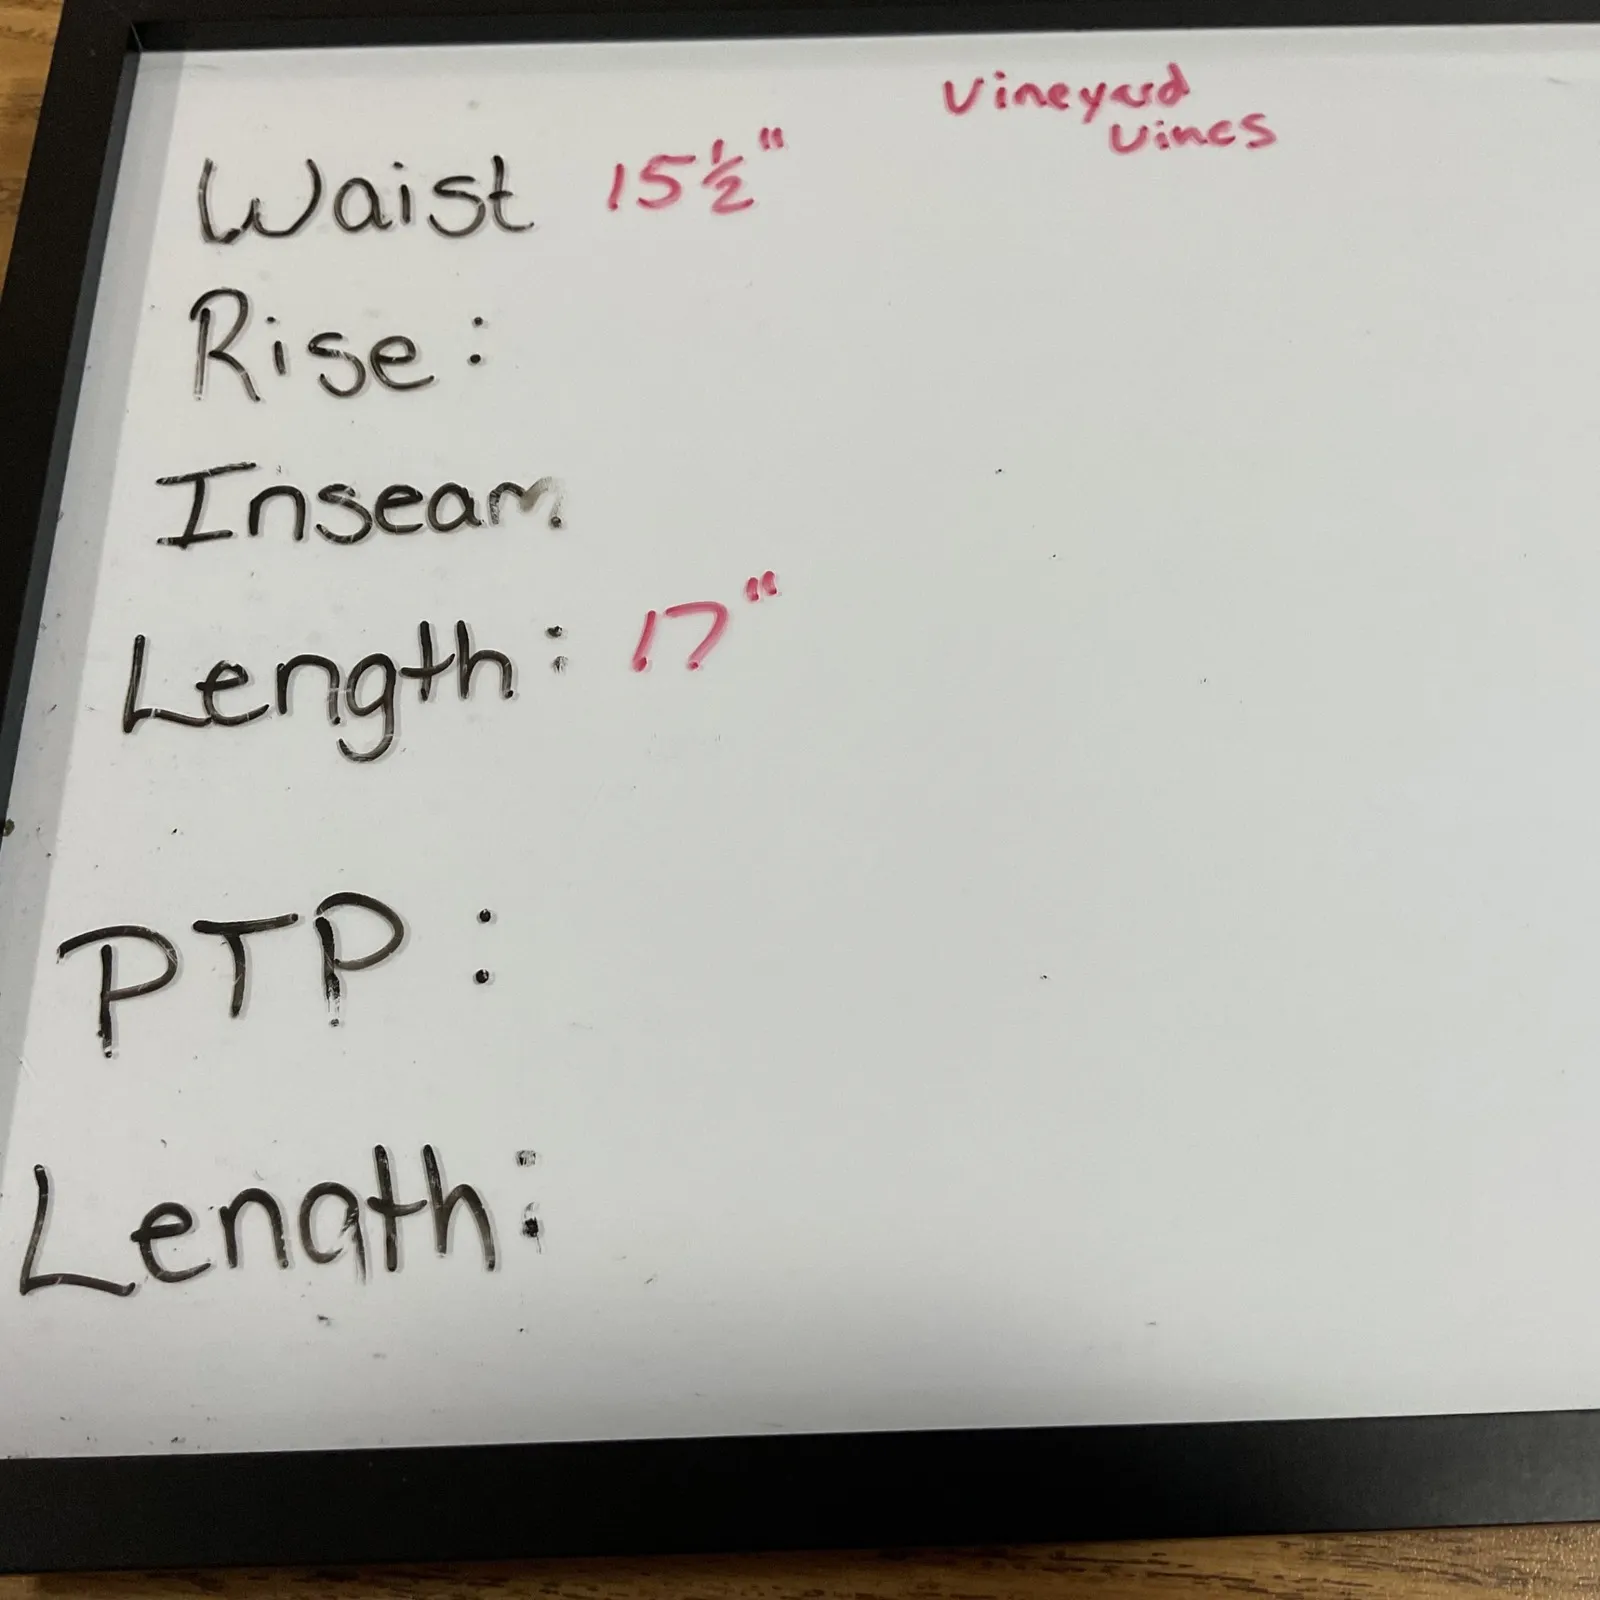 Vineyard
Vines
Waist 15 1/2"
Rise:
Inseam
Length: 17"
PTP:
Length: